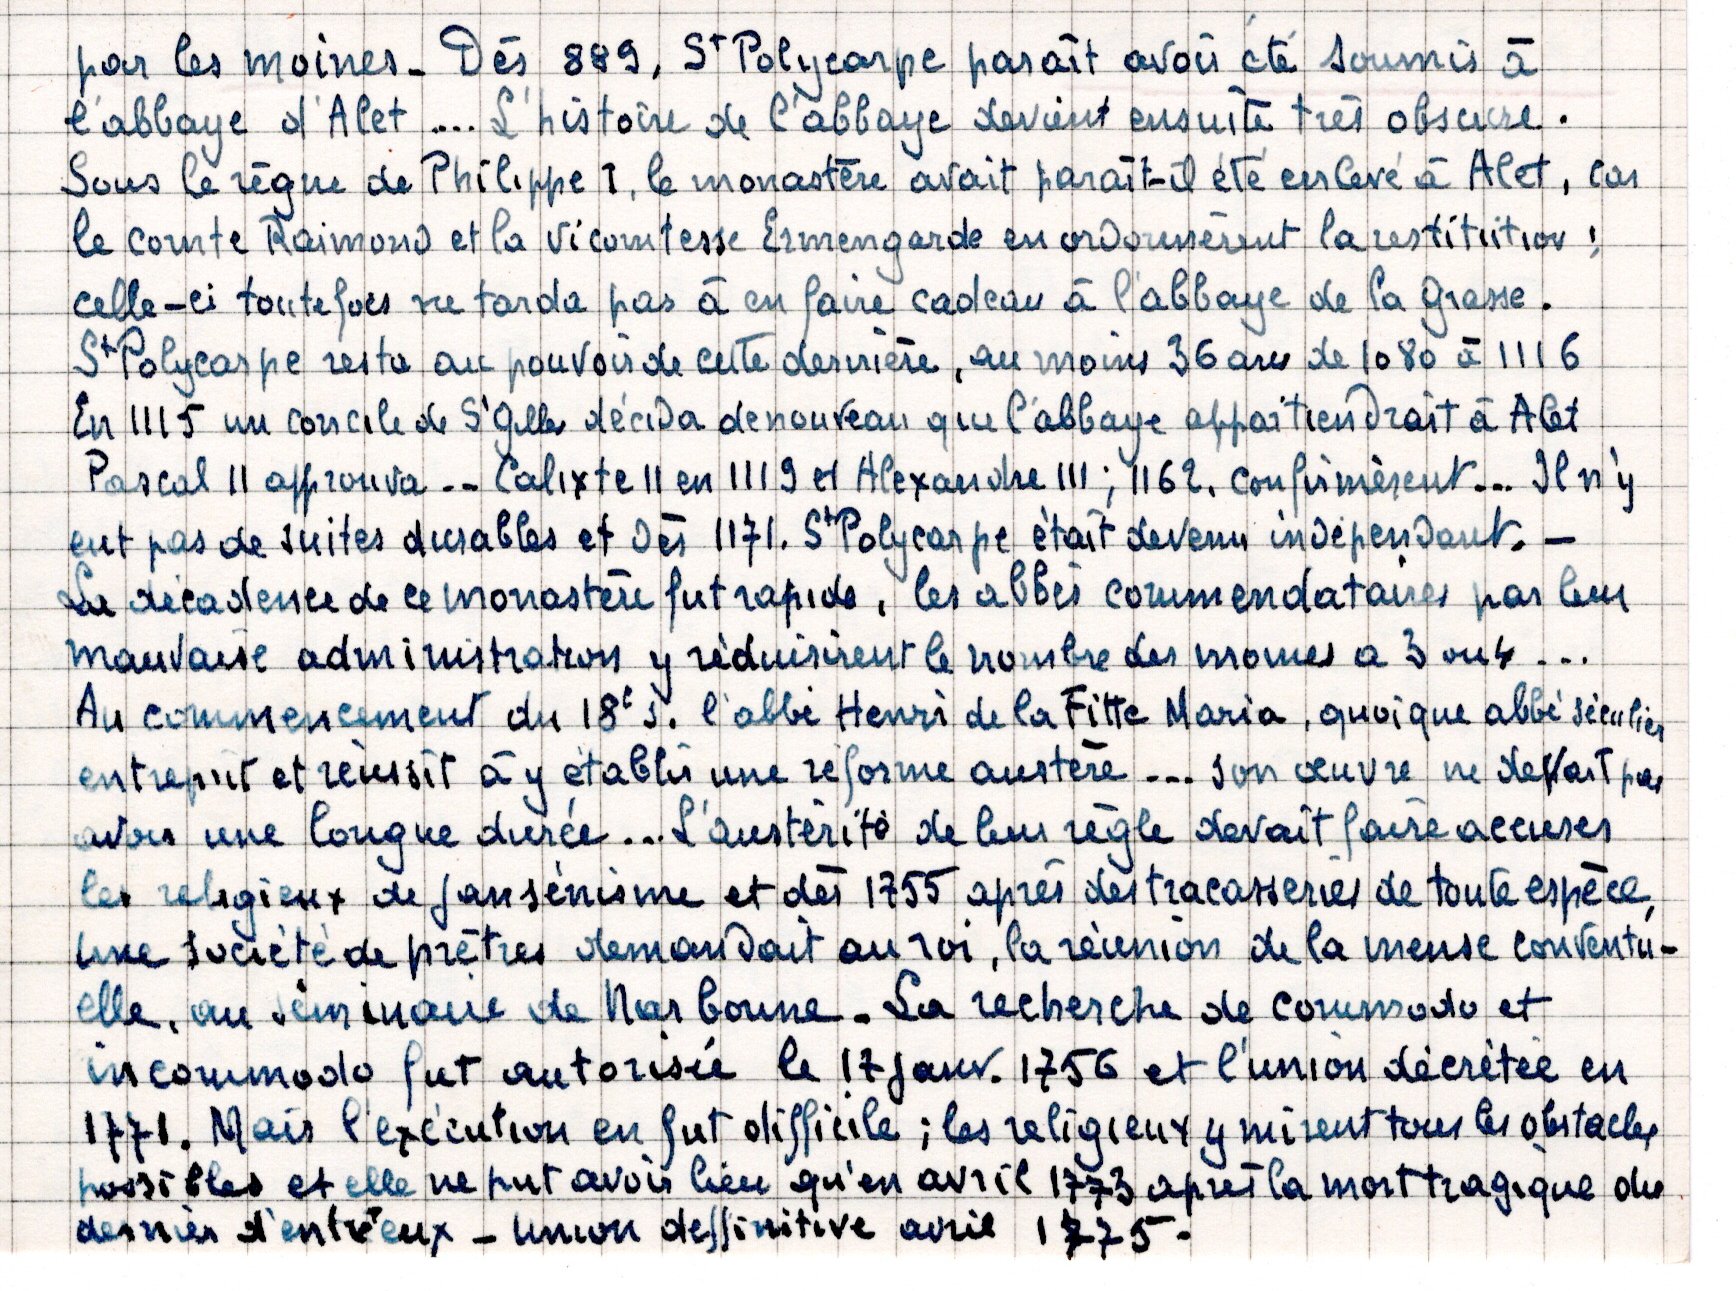 par les moines - Dès 889, St Polycarpe paraît avoir été soumis à
l'abbaye d'Alet .... L'histoire de l'abbaye devient ensuite très obscure.
Sous le règne de Philippe I, le monastère avait paraît-il été enlevé à Alet, car
le comte Raimond et la vicomtesse Ermengarde en ordonnèrent la restitution ;
celle-ci toutefois ne tarda pas à en faire cadeau à l'abbaye de la Grasse.
St Polycarpe resta au pouvoir de cette dernière, au moins 36 ans de 1080 à 1116
En 1115 un concile de St Gilles décida de nouveau que l'abbaye appartiendrait à Alet
Pascal II approuva -- Calixte II en 1119 et Alexandre III ; 1162. confirmèrent... Il n'y
eut pas de suites durables et dès 1171. St Polycarpe était devenu indépendant. -
La décadence de ce monastère fut rapide, les abbés commendataires par leur
mauvaise administration y réduisirent le nombre des moines a 3 ou 4 ...
Au commencement du 18e s. l'abbé Henri de la Fitte Maria, quoique abbé séculier
entreprit et réussit à y établir une réforme austère ... son œuvre ne devait pas
avoir une longue durée ... L'austérité de leur règle devait faire accuser
les religieux de jansénisme et dès 1755 après des tracasseries de toute espèce,
une société de prêtres demandait au roi, la réunion de la mense conventu-
elle, au séminaire de Narbonne. La recherche de commodo et
incommodo fut autorisée le 17 janv. 1756 et l'union décrétée en
1771. Mais l'exécution en fut difficile ; les religieux y mirent tous les obstacles
possibles et elle ne put avoir lieu qu'en avril 1773 après la mort tragique du
dernier d'entr'eux - Union deffinitive avril 1775.